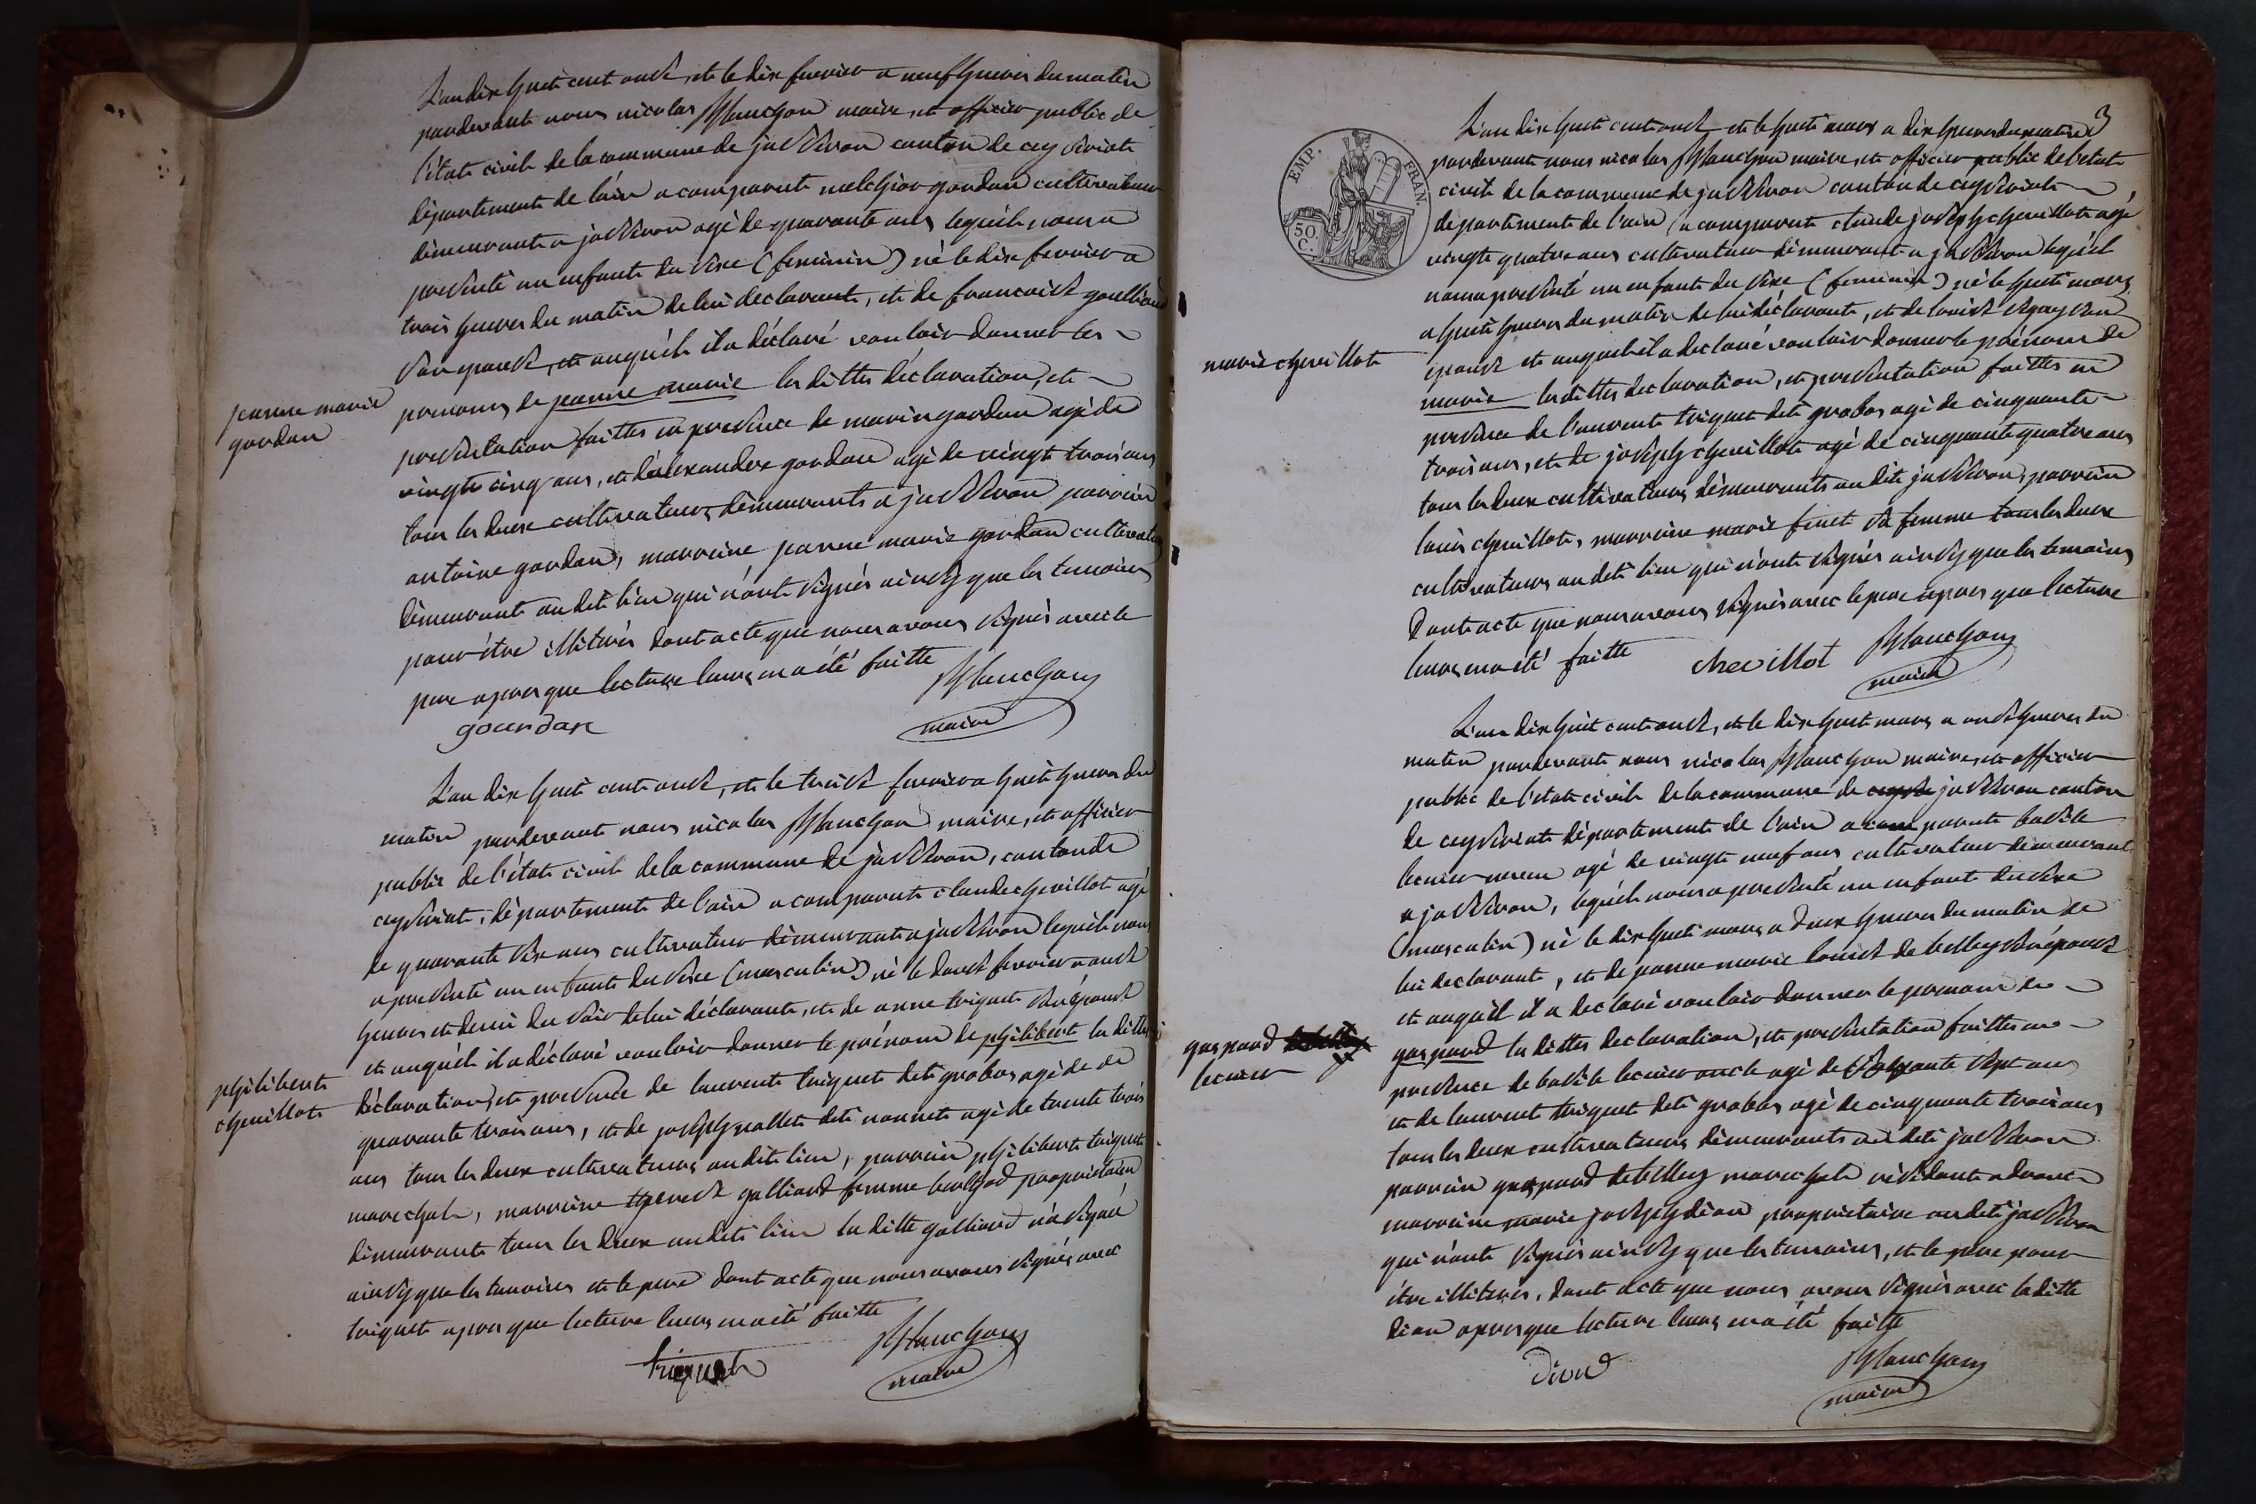 L'an dix huit cent onze, et le dix fevrier a neuf heures du matin
pardevant nous nicolas Planchon maire et officier public de
l'état civil de la commune de jasseron canton de ceyseriat
département de l'ain a comparut melchior gordan cultivateur
démeurant a jasseron agé de quarante ans lequél nous a
presenté un enfant du sexe (feminin) né le dix fevrier a
trois heures du matin de lui declarant, et de francoise
son epouse, et auquél il a déclaré vouloir donner les
prenoms de jeanne marie les dittes déclaration, et
jeanne marie
gordan
presentation faittes en presence de marin gordan agé de
vingt cinq ans, et d'alexandre gordan agé de vingt trois ans
tous les deux cultivateurs démeurants a jasseron parrain
antoine gordan, marraine jeanne marie gordan cultivateurs
démeurants au dit lieu qui n'ont signés ainsy que les temoins
pour étre illiterés dont acte que nous avons signés avec le
pere apres que lecture leurs en a été faitte
gourdan
Planchon
maire
L'an dix huit cent onze, et le treize fevrier a huit heures du
matin pardevant nous nicolas Planchon maire, et officier
public de l'état civil de la commune de jasseron, canton de
ceyseriat, département de l'ain a comparut claude chevillot agé
de quarante six ans cultivateur démeurant a jasseron lequél nous
a presenté un enfant du sexe (masculin) né le douze fevrier a onze
heures et demi du soir de lui déclarant, et de anne triquet son épouse
et auquél il a déclaré vouloir donner le prénom de philibert les dittes
philibert
chevillot
déclaration, et presence de laurent triquet dit grobas agé de
quarante trois ans, et de joseph pallet dit nonnet agé de trente trois
ans tous les deux cultivateurs au dit lieu, parrain philibert triquet
marechal, marraine therese galliard femme proprietaire
démeurants tous les deux au dit lieu la ditte galliard n'a signé
ainsy que les temoins et le pere dont acte que nous avons signés avec
triquet apres que lecture leurs en a été faitte
triquet
Planchon
maire
3
EMP. FRAN.
50
C.
L'an dix huit cent onze et le huit mars a dix heures du matin
pardevant nous nicolas Planchon maire, et officier public de l'etat
civil de la commune de jasseron canton de ceyseriat
departement de l'ain a comparut claude joseph chevillot agé
vingt quatre ans cultivateur démeurant a jasseron lequél
nous a presenté un enfant du sexe (feminin) né le huit mars
a huit heures du matin de lui déclarant, et de louise son
epouse et auquel il a declaré vouloir donner le prénom de
marie chevillot
marie les dittes declaration, et presentation faittes en
presence de laurent triquet dit grobas agé de cinquante
trois ans, et de joseph chevillot agé de cinquante quatre ans
tous les deux cultivateurs démeurants au dit jasseron, parrain
louis chevillot, marraine marie finet sa femme tous les deux
cultivateurs au dit lieu qui n'ont signés ainsy que les temoins
dont acte que nous avons signés avec le pere apres que lecture
leurs en a été faitte
chevillot
Planchon
maire
L'an dix huit cent onze, et le dix huit mars a onze heures du
matin pardevant nous nicolas Planchon maire, et officier
public de l'état civil de la commune de jasseron canton
de ceyseriat département de l'ain a comparut basile
lecuier neveu agé de vingt neuf ans cultivateur démeurant
a jasseron, lequél nous a presenté un enfant du sexe
(masculin) né le dix huit mars a deux heures du matin de
lui declarant, et de jeanne marie louise debelley son épouse
et auquél il a declaré vouloir donner le prenom de
gaspard
lecuier
gaspard les dittes declaration, et presentation faittes en
presence de basile lecuier oncle agé de soixante sept ans
et de laurent triquet dit grobas agé de cinquante trois ans
tous les deux cultivateurs démeurants au dit jasseron
parrain gaspard debelley marechal résidant a drom
marraine marie joseph dion proprietaire au dit jasseron
qui n'ont signés ainsy que les temoins, et le pere pour
étre illiterés, dont acte que nous avons signés avec la ditte
dion apres que lecture leurs en a été faitte
dion
Planchon
maire